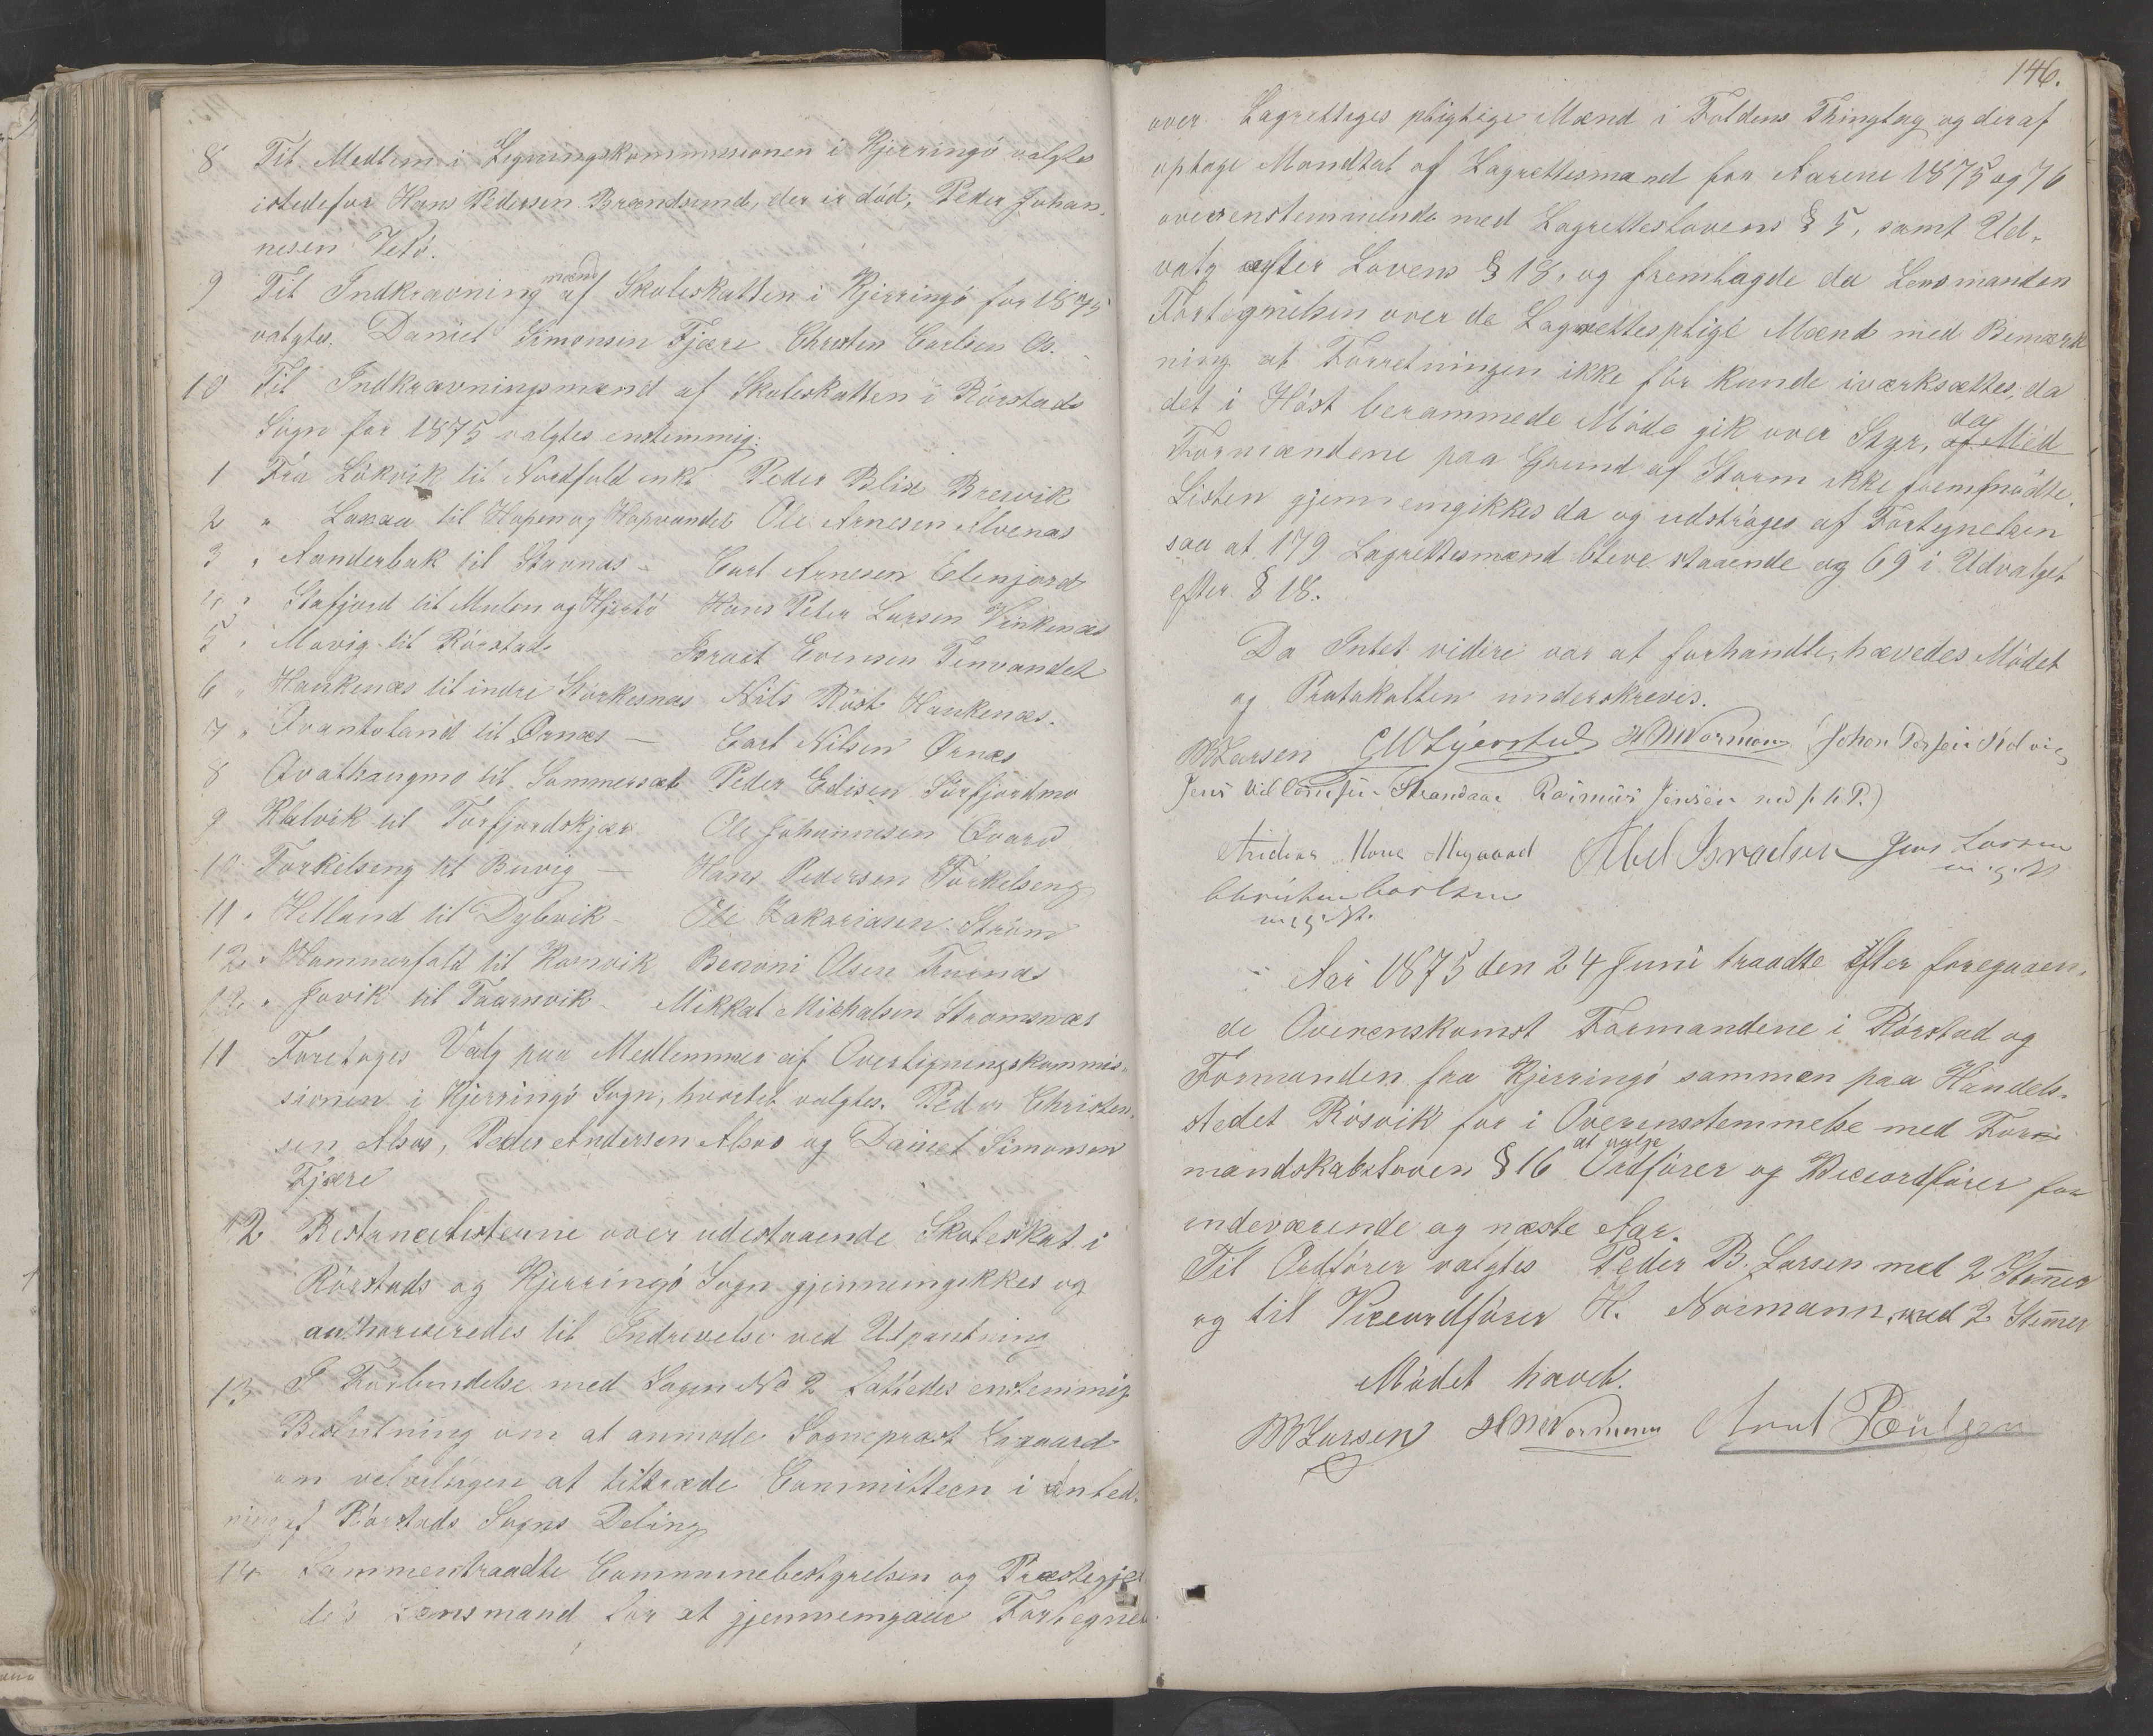 8 Til Medlem i Ligningskommissionen i Kjerringö valgtes
istedefor Hans Pedersen Brændsund, der er död, Peder Johan-
nesen Vetö.
9 Til Indkrævning mænd af Skoleskatten i Kjerringö for 1875
valgtes. Daniel Simonsen Fjære Christen Carlsen Os.
10 Til Indkrævningsmænd af Skoleskatten i Rörstads
Sogn for 1875 valgtes enstemmig:
1 Fra Lökvik til Nordfold inkl Peder Blix Brevik
2 " Laxaa til Hopen og Hopvandet Ole Arnesen Alvenæs
3 " Aanderbak til Stavnæs - Carl Arnesen Elenjord
4 " Stafjord til Mulen og Hjertö Hans Peter Larsen Vinkenæs
5 " Movig til Rörstad Israel Evensen Tenvandet
6 " Haukenæs til indre Störkesnæs Nils Röst Haukenæs.
7 " Qvantoland til Ørnæs - Carl Nilsen Ørnæs
8 Qvalhaugmo til Sommerset Peder Edisen Sörfjordmo
9 Kalvik til Torfjordskjær Ole Johannesen Qvarv
10 Torkelseng til Buvig - Hans Pedersen Torkelseng
11 " Helland til Dybvik - Ole Zakariasen Ström
12 " Hammerfald til Kornvik Benoni Olsen Trainæs
12 " Jovik til Taarnvik - Mikkal Mickalsen Strømsnæs
11 Foretoges Valg paa Medlemmer af Overligningskommis-
sionen i Kjerringö Sogn, hvortil valgtes. Peder Christen-
sen Alsos, Peder Andersen Alsos og Daniel Simonsen
Fjære
12 Restancelisterne over udestaaende Skoleskat i
Rörstads og Kjerringö Sogn gjennemgikkes og
authoriseredes til Inddrivelse ved Udpantning
13 I Forbindelse med Sagen No 2 fattedes enstemmig
Beslutning om at anmode Sognepræst Lyzaard
om velvilligen at tiltræde Committeen i Anled-
ning af Rörstads Sogns Deling
14 Sammentraadte Communebestyrelsen og Præstegjel
dets Lensmand for at gjennemgaae Fortegnel
146.
over Lagrettesges pligtige Mænd i Foldens Thinglag og deraf
optage Mandtal af Lagrettesmænd for Aarene 1875 og 76
overensstemmende med Lagretteslovens § 5, samt Ud-
valg efter Lovens § 18, og fremlagde da Lensmanden
Fortegnelsen over de Lagrettespligt Mænd med Bemærk
ning at Forretningen ikke för kunde iværksættes, da
det i Höst berammede Möde gik over Styr, da af Med
Formændene paa Grund af Storm ikke fremmödte.
Listen gjennemgikkes da og udströges af Fortegnelsen
saa at 179 Lagrettesmænd bleve staaende og 69 i Udvalget
efter § 18.
Da Intet videre var at forhandle, hævedes Mödet
og Protokollen underskreves.
PBLarsen H Normann
Jens Strandaa Rasmus Jensen
Abel Israelsen Jens Larsen
m. g. N.
Christen Carlsen
m. g. N.
Aar 1875 den 24 Juni traadte efter foregaaen-
de Overenskomst Formændene i Rörstad og
Formanden fra Kjerringö sammen paa Handels-
stedet Rösvik for i Overensstemmelse med For-
mandskabsloven § 16 at vælge Ordförer og Viceordförer for
indeværende og næste Aar.
Til Ordförer valgtes Peder B. Larsen med 2 Stemmer
og til Viceordförer H. Normann, med 2 Stemmer
Mödet hævet.
PBLarsen H Normann